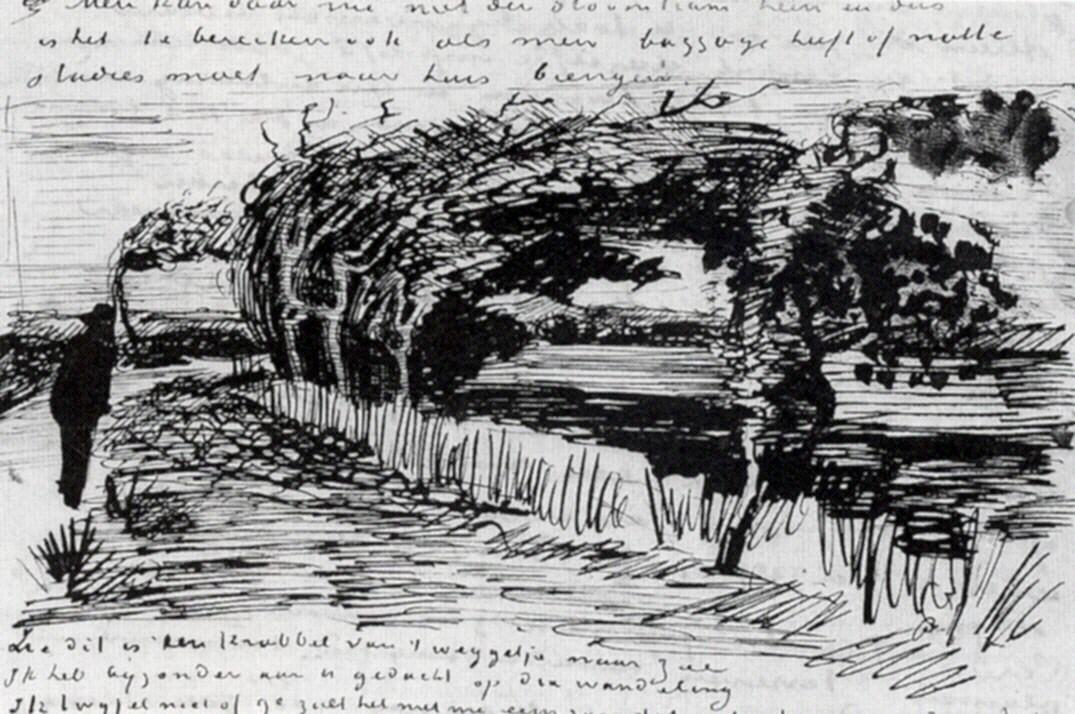 Men kan daar me met der stoomtram heen en dus
is het te bereiken ook als men baggage heeft of natte
studies moet naar huis brengen.
Zie dit is een krabbel van 't weggetje naar zee
Ik heb byzonder aan U gedacht op die wandeling
Ik twyfel niet of ge zult het met me eens